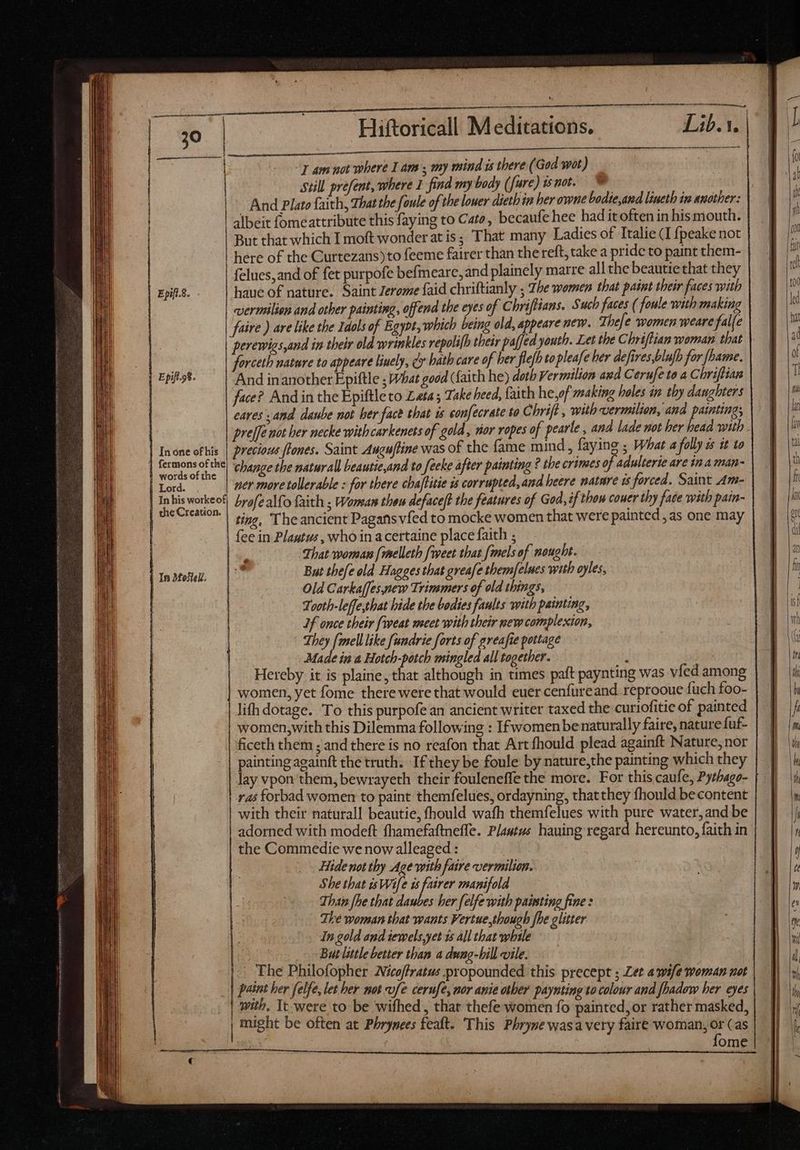 30
Hiſtoricall Meditations.
Lib. 1.
I am not where I am ; my mind is there (God wot)
Still preſent, where I find my body (ſure) is not.
And Plato ſaith, That the ſoule of the louer dieth in her owne bodie, and liueth in another:
albeit ſome attribute this ſaying to Cato, becauſe hee had it often in his mouth.
But that which I moſt wonder at is ; That many Ladies of Italie (I ſpeake not
here of the Curtezans) to ſeeme fairer than the reſt, take a pride to paint them-
ſelues, and of ſet purpoſe beſmeare, and plainely marre all the beautie that they
Epiſt. 8.
haue of nature. Saint Ierome ſaid chriſtianly ; The women that paint their faces with
vermilion and other painting, offend the eyes of Chriſtians. Such faces ( foule with making
faire ) are like the Idols of Egypt, which being old, appeare new. Theſe women weare falſe
perewigs, and in their old wrinkles repoliſh their paſſed youth. Let the Chriſtian woman that
forceth nature to appeare liuely, & hath care of her fleſh to pleaſe her deſires, bluſh for ſhame.
Epiſt. 98.
And in another Epiſtle ; What good (ſaith he) doth Vermilion and Ceruſe to a Chriſtian
face? And in the Epiſtle to Læta ; Take heed, ſaith he, of making holes in thy daughters
eares ; and daube not her face that is conſecrate to Chriſt, with vermilion, and painting;
preſſe not her necke with carkenets of gold, nor ropes of pearle, and lade not her head with
In one of his
ſermons of the
words of the
Lord.
precious ſtones. Saint Auguſtine was of the ſame mind, ſaying ; What a folly is it to
change the naturall beautie, and to ſeeke after painting ? the crimes of adulterie are in a man-
ner more tollerable : for there chaſtitie is corrupted, and heere nature is forced. Saint Am-
In his worke of
the Creation.
broſe alſo ſaith ; Woman thou defaceſt the features of God, if thou couer thy face with pain-
ting. The ancient Pagans vſed to mocke women that were painted, as one may
ſee in Plautus, who in a certaine place ſaith ;
In Moſtell.
That woman ſmelleth ſweet that ſmels of nought.
But theſe old Hagges that greaſe themſelues with oyles,
Old Carkaſſes, new Trimmers of old things,
Tooth-leſſe, that hide the bodies faults with painting,
If once their ſweat meet with their new complexion,
They ſmell like ſundrie ſorts of greaſie pottage
Made in a Hotch-potch mingled all together.
Hereby it is plaine, that although in times paſt paynting was vſed among
women, yet ſome there were that would euer cenſure and reprooue ſuch foo-
liſh dotage. To this purpoſe an ancient writer taxed the curioſitie of painted
women, with this Dilemma following : If women be naturally faire, nature ſuf-
ficeth them ; and there is no reaſon that Art ſhould plead againſt Nature, nor
painting againſt the truth. If they be foule by nature, the painting which they
lay vpon them, bewrayeth their fouleneſſe the more. For this cauſe, Pythago-
ras forbad women to paint themſelues, ordayning, that they ſhould be content
with their naturall beautie, ſhould waſh themſelues with pure water, and be
adorned with modeſt ſhamefaſtneſſe. Plautus hauing regard hereunto, ſaith in
the Commedie we now alleaged :
Hide not thy Age with faire vermilion.
She that is Wiſe is fairer manifold
Than ſhe that daubes her ſelfe with painting fine :
The woman that wants Vertue, though ſhe glitter
In gold and iewels, yet is all that while
But little better than a dung-hill vile.
The Philoſopher Nicoſtratus propounded this precept ; Let a wiſe woman not
paint her ſelfe, let her not vſe ceruſe, nor anie other paynting to colour and ſhadow her eyes
with. It were to be wiſhed, that theſe women ſo painted, or rather masked,
might be often at Phrynees feaſt. This Phryne was a very faire woman, or (as
ſome